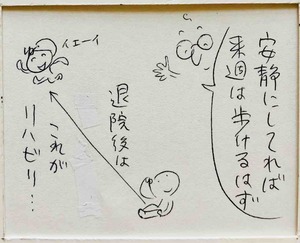 安静にしてれば
来週は歩けるはず
イエーイ
退院後は
これが
リハビリ…